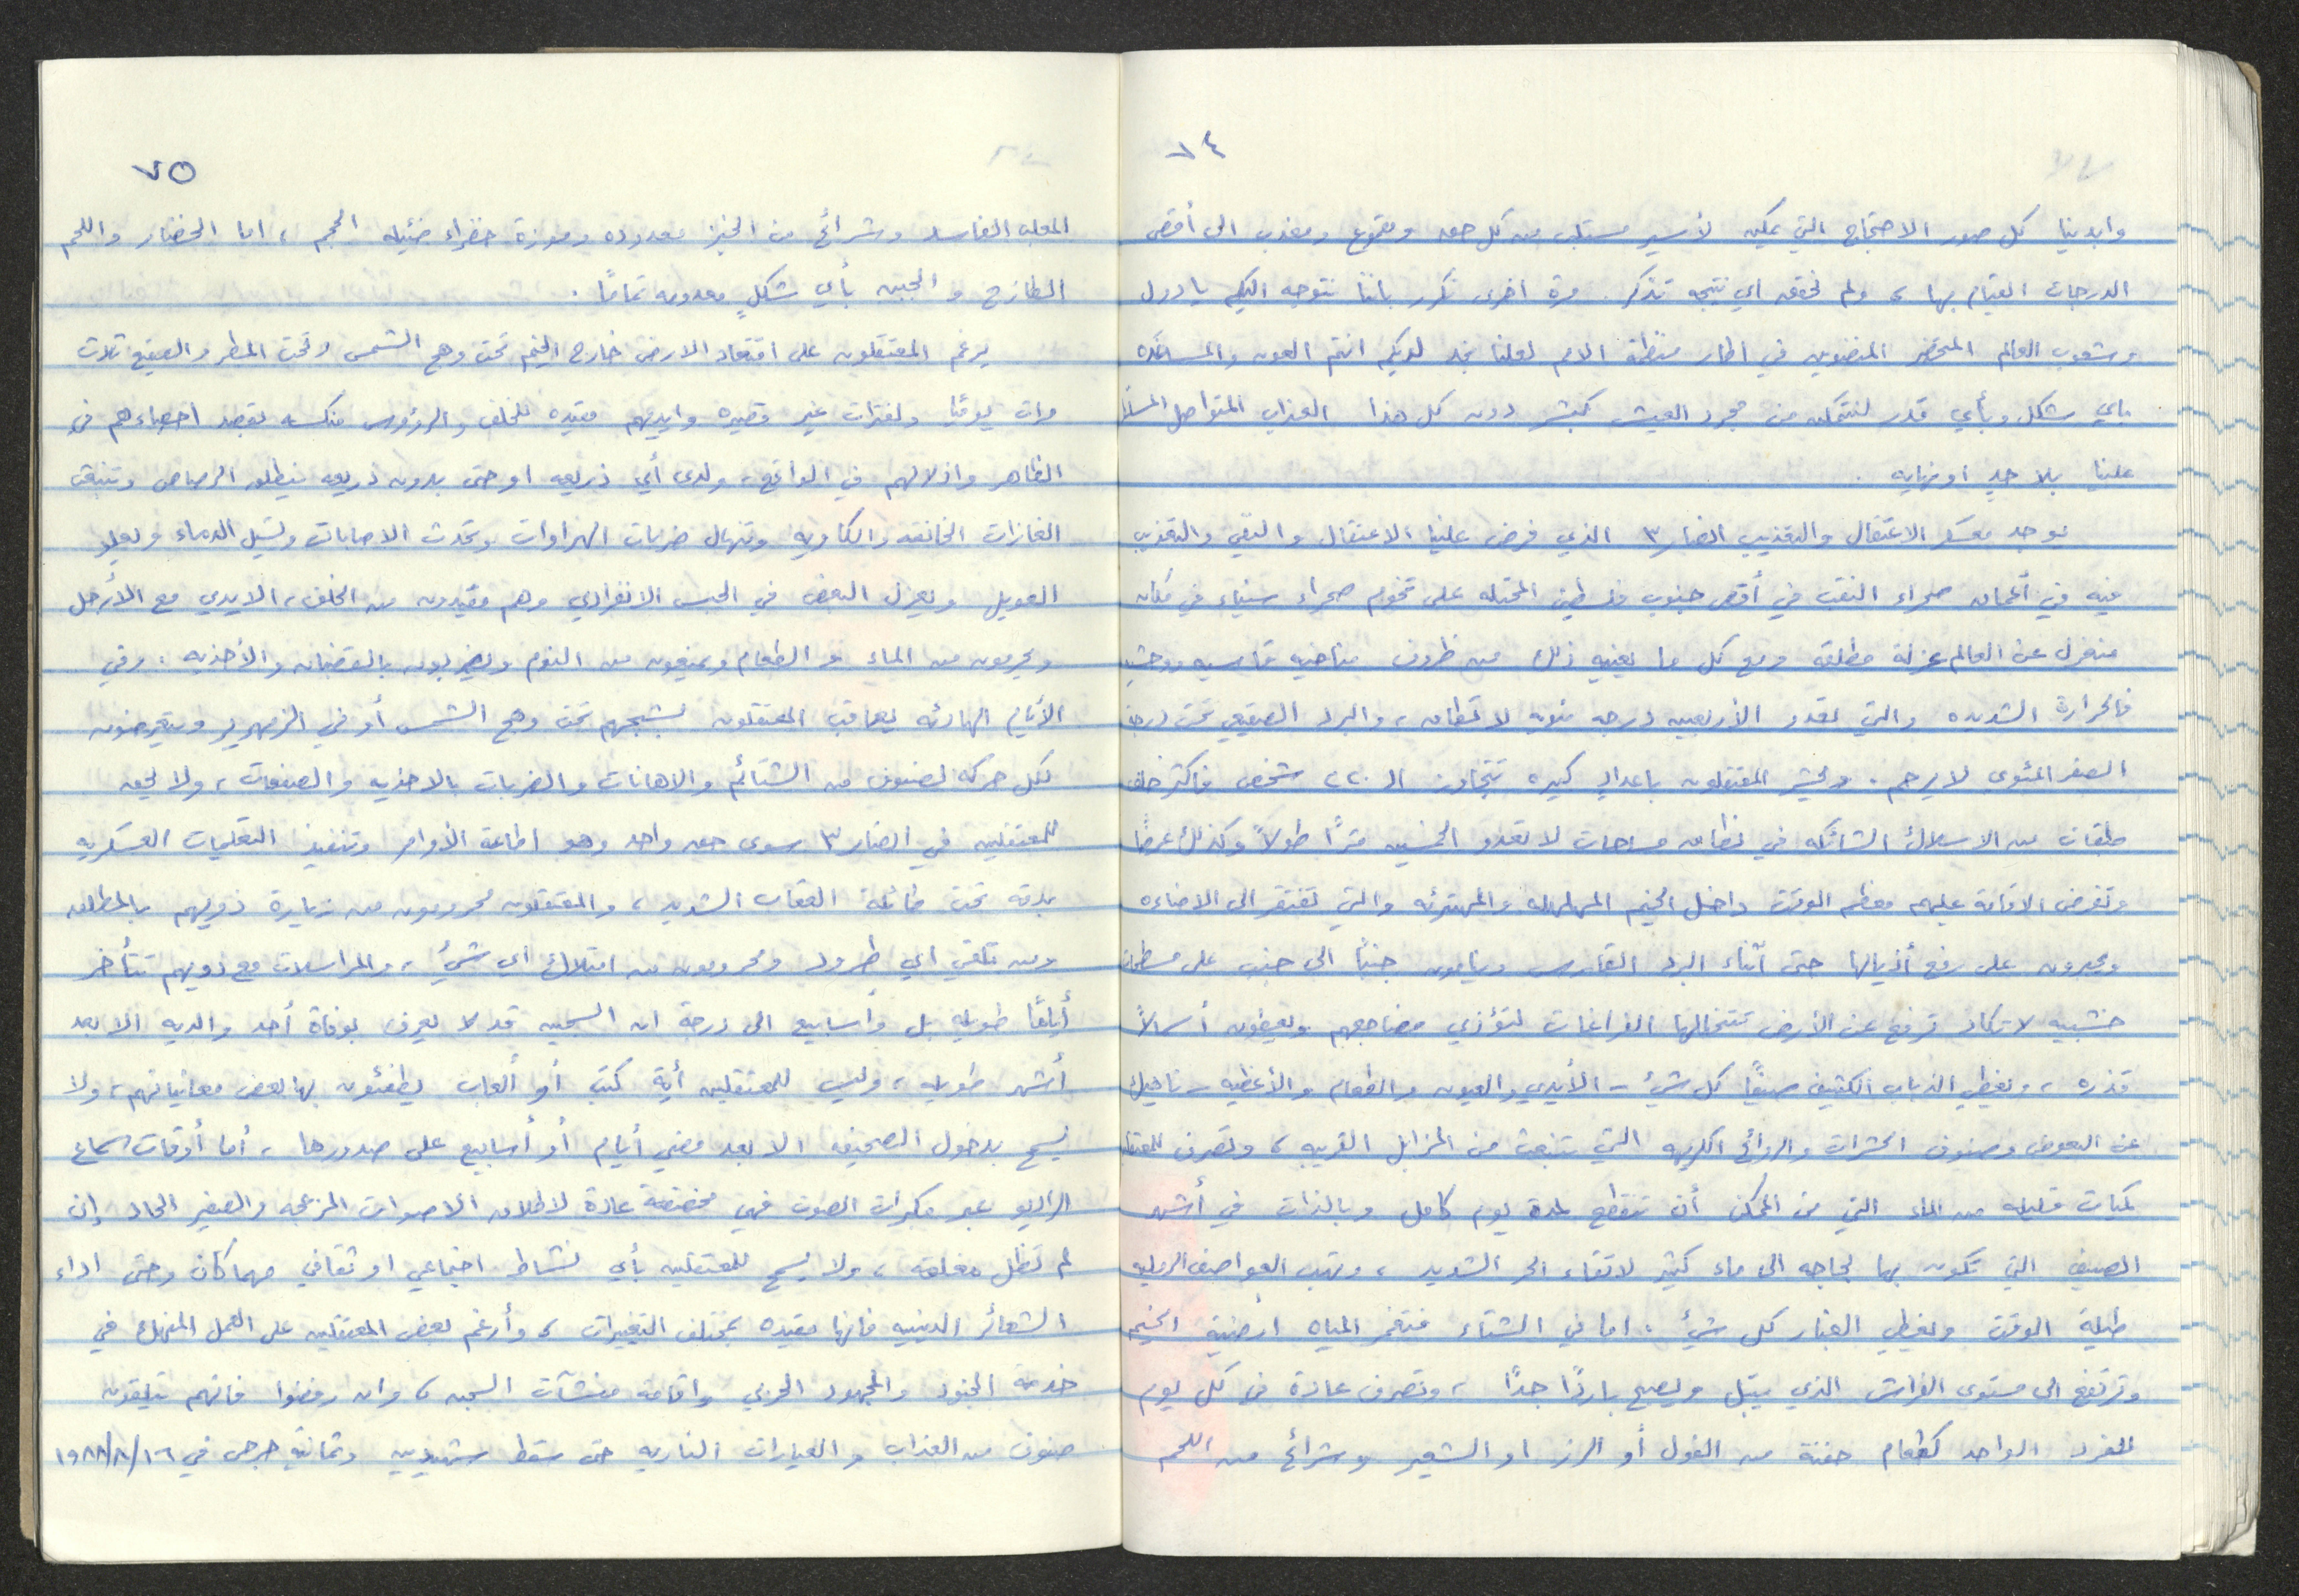 ٧٤
وابدينا كل صور الاحتجاج التي يمكن لأسير مستلب من كل حق ومقموع ومعذب الى أقصى
الدرجات القيام بها، ولم نحقق اي نتيجه تذكر. مرة اخرى نكرر باننا نتوجه اليكم يا دول
وشعوب العالم المتحضر المنضوين في اطار منظمة الامم لعلنا نجد لديكم انتم العون والمسانده
باي شكل وبأي قدر لنتمكن من مجرد العيش كبشر دون كل هذا العذاب المتواصل المسلط
علينا بلا حدٍ او نهايه.
يوجد معسكر الاعتقال والتعذيب انصار ٣ الذي فرض علينا الاعتقال والنفي والتعذيب
فيه في أعماق صحراء النقب في أقصى جنوب فلسطين المحتله على تخوم صحراء سيناء في مكان
منعزل عن العالم عزلة مطلقه ومع كل ما يعنيه ذلك من ظروف مناخيه قاسيه ووحشيه
فالحرارة الشديده والتي تعدو الأربعين درجه مئويه لا تطاق، والبرد الصقيعي تحت درجة
الصفر المئوي لا يرحم. ويحشر المعتقلون باعدادٍ كبيره تتجاوز الـ ٢٢٠ شخص فاكثر خلف
طبقات من الاسلاك الشائكه في نطاق مساحات لا تعدو الخمسين متراً طولاً وكذلك عرضاً
وتفرض الاقامة عليهم معظم الوقت داخل الخيم المهلهله والمهترئه والتي تفتقر الى الاضاءه
ويجبرون على رفع أذيالها حتى أثناء البرد القارس وينامون جنباً الى جنب على مسطحات
خشبيه لا تكاد ترفع عن الأرض تتخللها الفراغات لتؤذي مضاجعهم ويعطون أسمالاً
قذره، ويغطي الذباب الكثيف صيفاً كل شيء - الأيدي والعيون والطعام والأغطيه - ناهيك
عن البعوض وصنوف الحشرات والروائح الكريهه التي تنبعث من المزابل القريبه، وتصرف للمعتقلين
كميات قليله من الماء التي من الممكن أن تنقطع لمدة يوم كامل وبالذات في أشهر
الصيف التي تكون بها بحاجه الى ماء كثير لاتقاء الحر الشديد، وتهب العواصف الرمليه
طيلة الوقت ويغطي الغبار كل شيء. اما في الشتاء فتغمر المياه ارضية الخيم
وترتفع الى مستوى الفراش الذي يبتل ويصبح بارداً جداً، وتصرف عادة في كل يوم
للفرد الواحد كطعام حفنة من الفول أو الرز او الشعير وشرائح من اللحم
٧٥
المعلب الفاسد وشرائح من الخبز معدوده وموزة خضراء ضئيله الحجم، اما الخضار واللحم
الطازج والجبن بأي شكلٍ معدومه تماماً.
يرغم المعتقلون على اقتعاد الارض خارج الخيم تحت وهج الشمس وتحت المطر والصقيع ثلاث
مرات يومياً ولفترات غير قصيره وايديهم مقيده للخلف والرؤوس منكسه بقصد احصاءهم في
الظاهر واذلالهم في الواقع، ولدى أي ذريعه او حتى بدون ذريعه ينطلق الرصاص وتنبعث
الغازات الخانقه والكاويه وتنهال ضربات الهراوات وتحدث الاصابات وتسيل الدماء ويعلو
العويل ويعزل البعض في الحبس الانفرادي وهم مقيدون من الخلف، الايدي مع الأرجل
ويحرمون من الماء والطعام ويمنعون من النوم ويضربون بالقضبان والأحذيه. وفي
الأيام الهادئه يعاقب المعتقلون بشبحهم تحت وهج الشمس أو في الزمهرير ويتعرضون
لكل حركه لصنوف من الشتائم والاهانات والضربات بالاحذيه والصفعات، ولا يحق
للمعتقلين في انصار ٣ سوى حق واحد وهو اطاعة الأوامر وتنفيذ التعليمات العسكريه
بدقه تحت طائلة العقاب الشديد، والمعتقلون محرومون من زيارة ذويهم بالمطلق
ومن تلقي اي طرود ومحرومون من امتلاك اي شيء، والمراسلات مع ذويهم تتأخر
أياماً طويله بل وأسابيع الى درجة ان السجين قد لا يعرف بوفاة أحد والديه الا بعد
أشهر طويله، وليس للمعتقلين أية كتب أو ألعاب يطفئون بها بعض معاناتهم، ولا
يسمح بدخول الصحيفه الا بعد مضي أيام أو أسابيع على صدورها، أما أوقات سماع
الراديو عبر مكبرات الصوت فهي مخصصة عادة لاطلاق الاصوات المزعجه والصفير الحاد إن
لم تظل مغلقه، ولا يسمح للمعتقلين بأي نشاط اجتماعي او ثقافي مهما كان وحتى اداء
الشعائر الدينيه فانها مقيده بمختلف التقييدات، وأرغم بعض المعتقلين على العمل المنهك في
خدمة الجنود والمجهود الحربي واقامة منشآت السجن، وان رفضوا فانهم يتلقون
صنوف من العذاب والعيارات الناريه حتى سقط شهيدين وثمانية جرحى في ١٦/٨/١٩٨٨